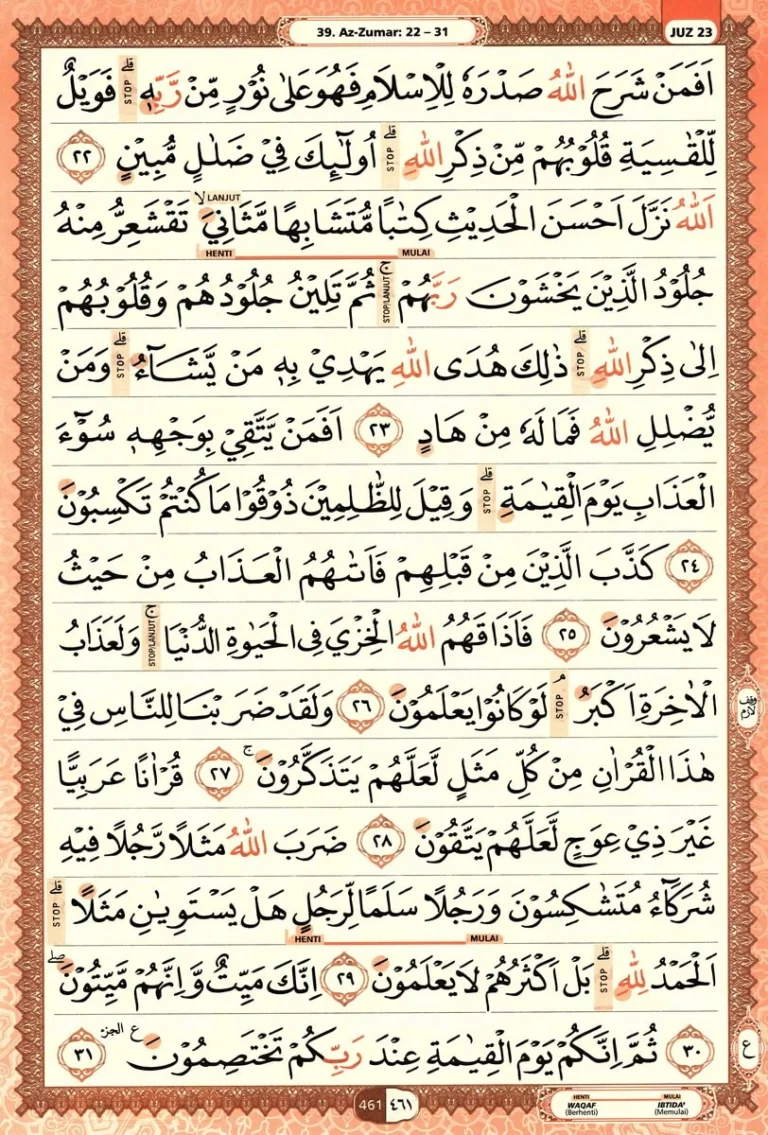 39. Az-Zumar: 22 – 31
JUZ 23
اَفَمَنْ شَرَحَ اللّٰهُ صَدْرَهٗ لِلْاِسْلَامِ فَهُوَ عَلٰى نُوْرٍ مِّنْ رَّبِّهٖ ۗ STOP فَوَيْلٌ
لِّلْقٰسِيَةِ قُلُوْبُهُمْ مِّنْ ذِكْرِ اللّٰهِ ۗ STOP اُولٰۤىِٕكَ فِيْ ضَلٰلٍ مُّبِيْنٍ ٢٢
LANJUT
اَللّٰهُ نَزَّلَ اَحْسَنَ الْحَدِيْثِ كِتٰبًا مُّتَشَابِهًا مَّثَانِيَۙ تَقْشَعِرُّ مِنْهُ
HENTI MULAI
جُلُوْدُ الَّذِيْنَ يَخْشَوْنَ رَبَّهُمْ ۚ STOP/LANJUT ثُمَّ تَلِيْنُ جُلُوْدُهُمْ وَقُلُوْبُهُمْ
اِلٰى ذِكْرِ اللّٰهِ ۗ STOP ذٰلِكَ هُدَى اللّٰهِ يَهْدِيْ بِهٖ مَنْ يَّشَاۤءُ ۗ STOP وَمَنْ
يُّضْلِلِ اللّٰهُ فَمَا لَهٗ مِنْ هَادٍ ٢٣ اَفَمَنْ يَّتَّقِيْ بِوَجْهِهٖ سُوْۤءَ
الْعَذَابِ يَوْمَ الْقِيٰمَةِ ۗ STOP وَقِيْلَ لِلظّٰلِمِيْنَ ذُوْقُوْا مَا كُنْتُمْ تَكْسِبُوْنَ
٢٤ كَذَّبَ الَّذِيْنَ مِنْ قَبْلِهِمْ فَاَتٰىهُمُ الْعَذَابُ مِنْ حَيْثُ
لَا يَشْعُرُوْنَ ٢٥ فَاَذَاقَهُمُ اللّٰهُ الْخِزْيَ فِى الْحَيٰوةِ الدُّنْيَا ۚ STOP/LANJUT وَلَعَذَابُ
الْاٰخِرَةِ اَكْبَرُ ۘ STOP لَوْ كَانُوْا يَعْلَمُوْنَ ٢٦ وَلَقَدْ ضَرَبْنَا لِلنَّاسِ فِيْ
وقف لازم
هٰذَا الْقُرْاٰنِ مِنْ كُلِّ مَثَلٍ لَّعَلَّهُمْ يَتَذَكَّرُوْنَۚ ٢٧ قُرْاٰنًا عَرَبِيًّا
غَيْرَ ذِيْ عِوَجٍ لَّعَلَّهُمْ يَتَّقُوْنَ ٢٨ ضَرَبَ اللّٰهُ مَثَلًا رَّجُلًا فِيْهِ
شُرَكَاۤءُ مُتَشٰكِسُوْنَ وَرَجُلًا سَلَمًا لِّرَجُلٍ هَلْ يَسْتَوِيٰنِ مَثَلًا ۗ STOP
HENTI MULAI
اَلْحَمْدُ لِلّٰهِ ۗ STOP بَلْ اَكْثَرُهُمْ لَا يَعْلَمُوْنَ ٢٩ اِنَّكَ مَيِّتٌ وَّاِنَّهُمْ مَّيِّتُوْنَ ۖ
٣٠ ثُمَّ اِنَّكُمْ يَوْمَ الْقِيٰمَةِ عِنْدَ رَبِّكُمْ تَخْتَصِمُوْنَ ع الجزء ٣١
ع
461 ٤٦١
HENTI MULAI
WAQAF IBTIDA'
(Berhenti) (Memulai)